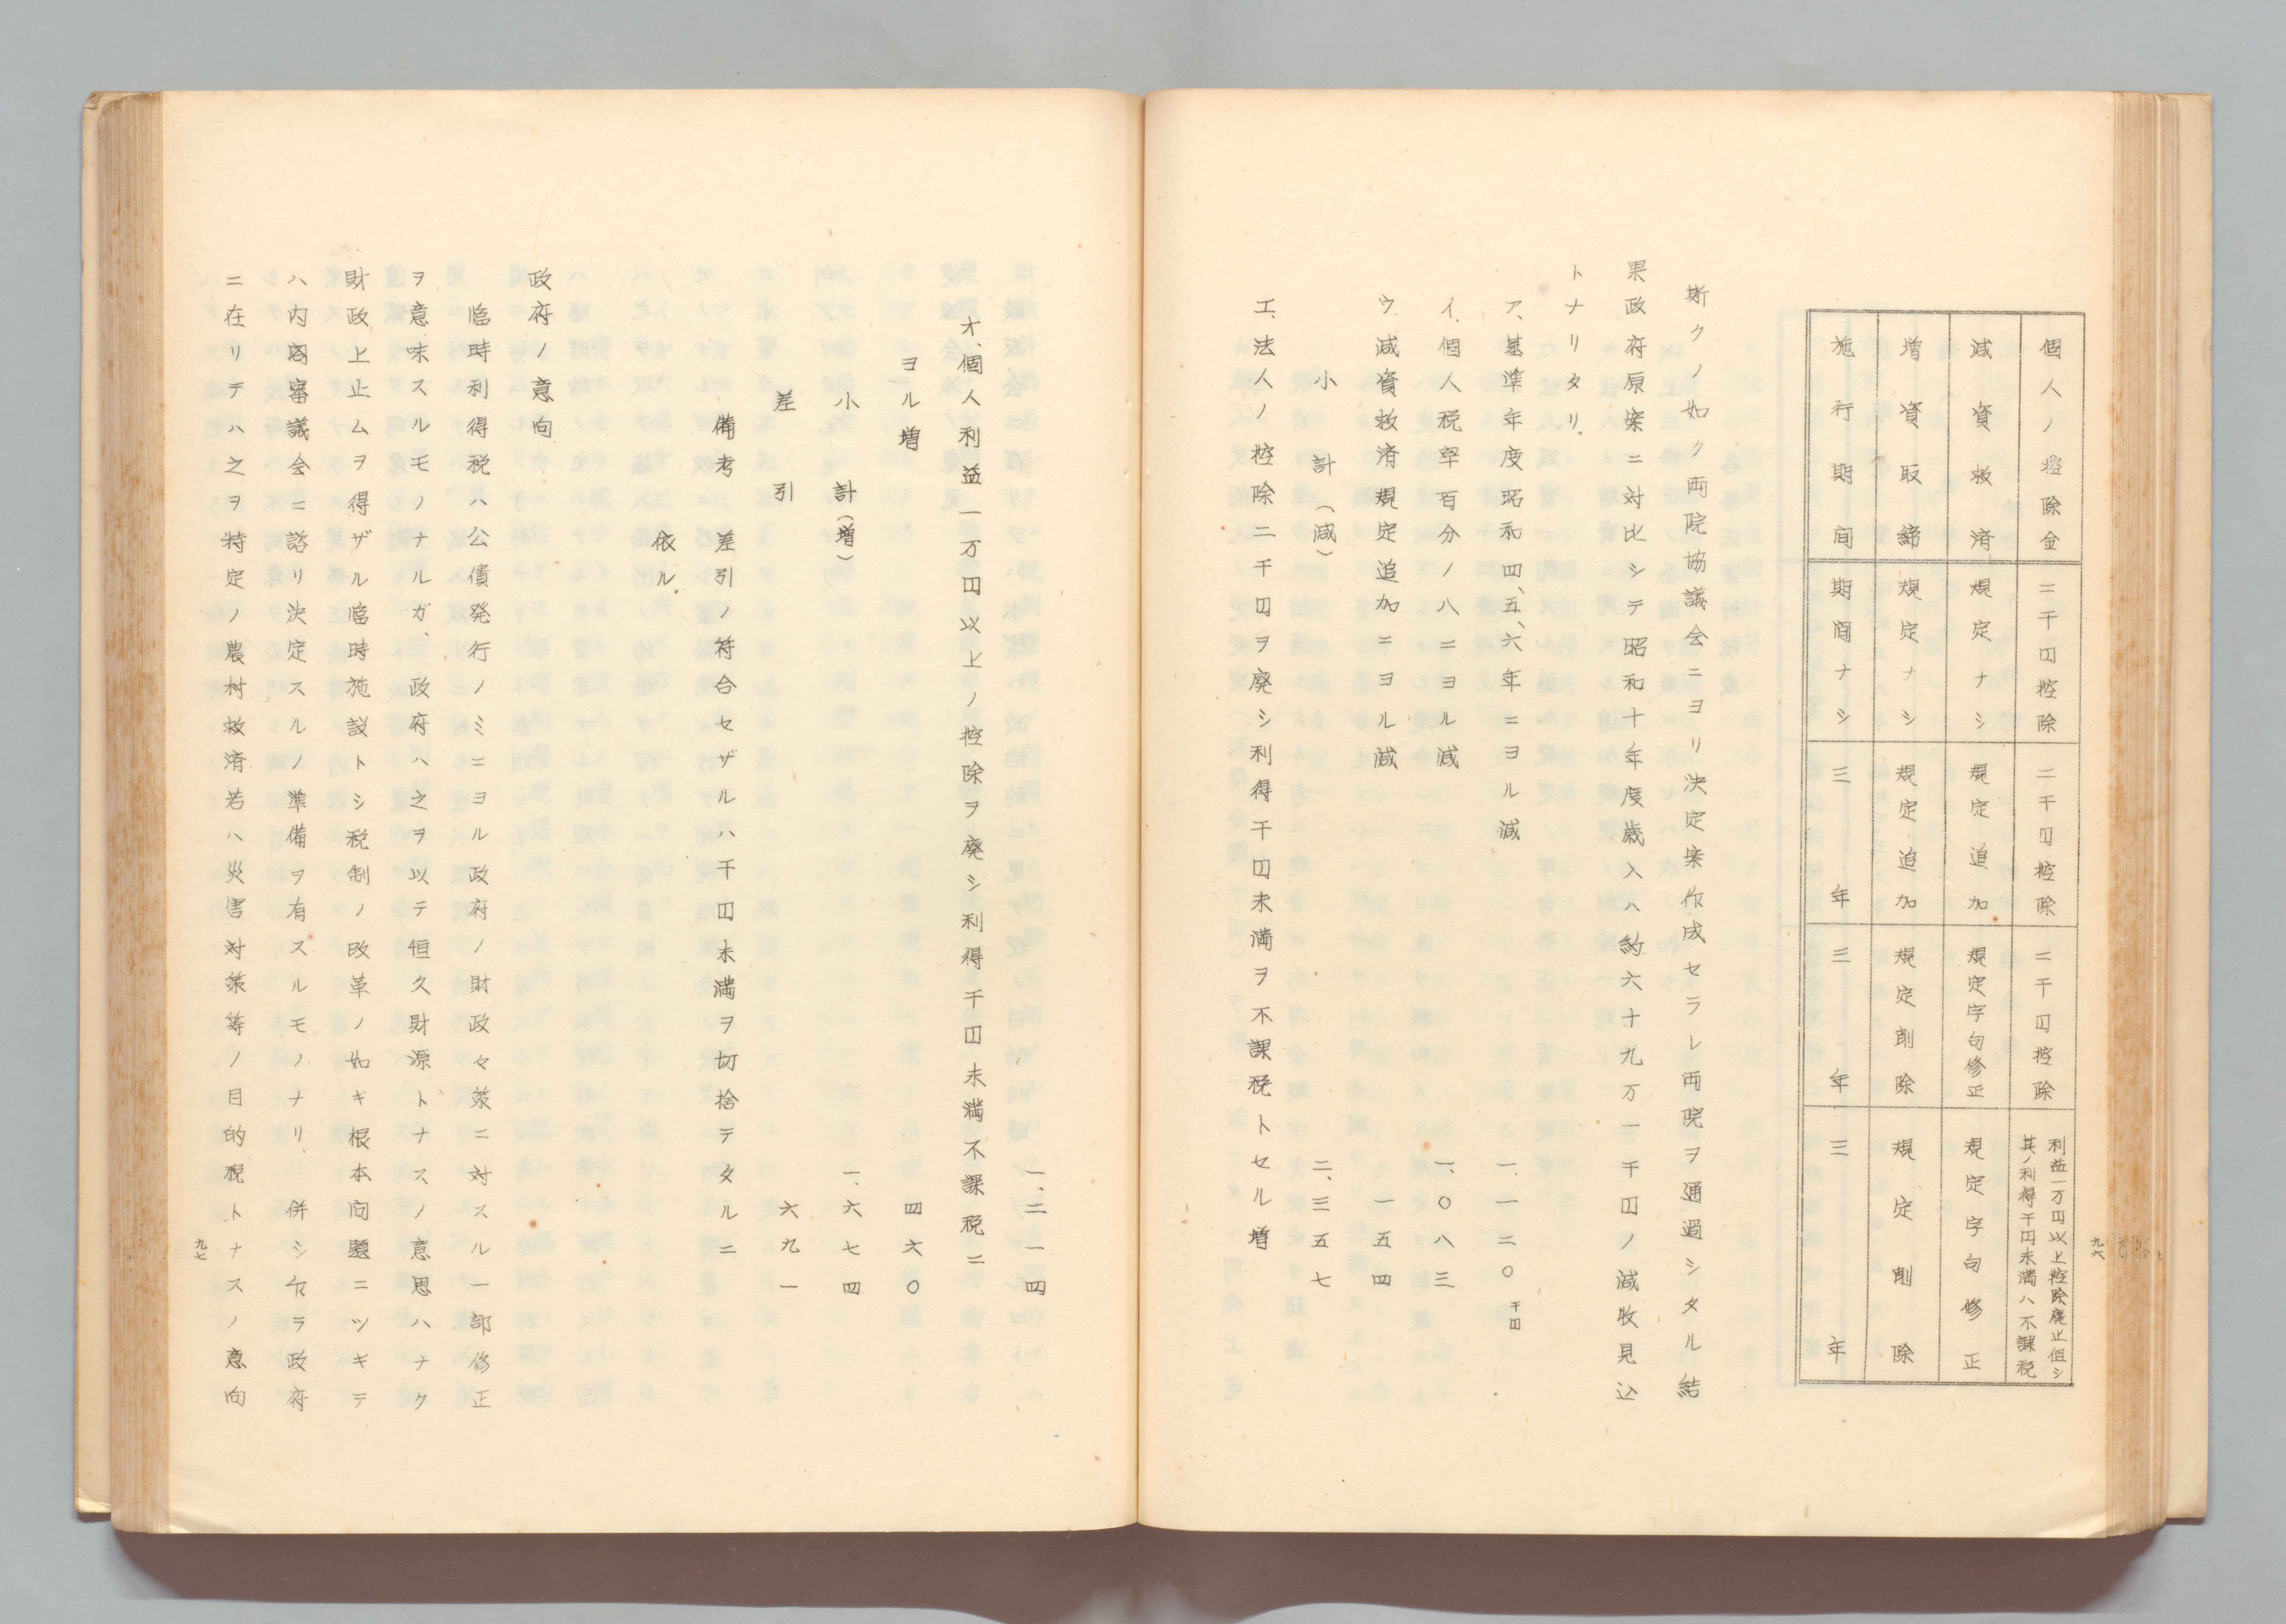 個人ノ控除金 二千円控除 二千円控除 二千円控除 利益一万円以上控除廃止但シ
其ノ利得千円未満ハ不課税
減資救済 規定ナシ 規定追加 規定字句修正 規定字句修正
増資取締 規定ナシ 規定追加 規定削除 規定削除
施行期間 期間ナシ 三年 三年 三年
斯クノ如ク両院協議会ニヨリ決定案作成セラレ両院ヲ通過シタル結
果政府原案ニ対比シテ昭和十年度歳入ハ約六十九万一千円ノ減收見込
トナリタリ.
ア、基準年度昭和四、五、六年ニヨル減 一、一二〇千円
イ、個人税率百分ノ八ニヨル減 一、〇八三
ウ、減資救済規定追加ニヨル減 一五四
小計(減) 二、三五七
エ、法人ノ控除二千円ヲ廃シ利得千円未満ヲ不課税トセル増
九六
一、二一四
オ、個人利益一万円以上ノ控除ヲ廃シ利得千円未満不課税ニ
ヨル増 四六〇
小計(増) 一、六七四
差引 六九一
備考 差引ノ符合セザルハ千円未満ヲ切捨テタルニ
依ル.
政府ノ意向
臨時利得税ハ公債発行ノミニヨル政府ノ財政々策ニ対スル一部修正
ヲ意味スルモノナルガ、政府ハ之ヲ以テ恒久財源トナスノ意思ハナク
財政上止ムヲ得ザル臨時施設トシ税制ノ改革ノ如キ根本問題ニツキテ
ハ内閣審議会ニ諮リ決定スルノ準備ヲ有スルモノナリ、併シ乍ラ政府
ニ在リテハ之ヲ特定ノ農村救済若ハ災害対策等ノ目的税トナスノ意向
九七